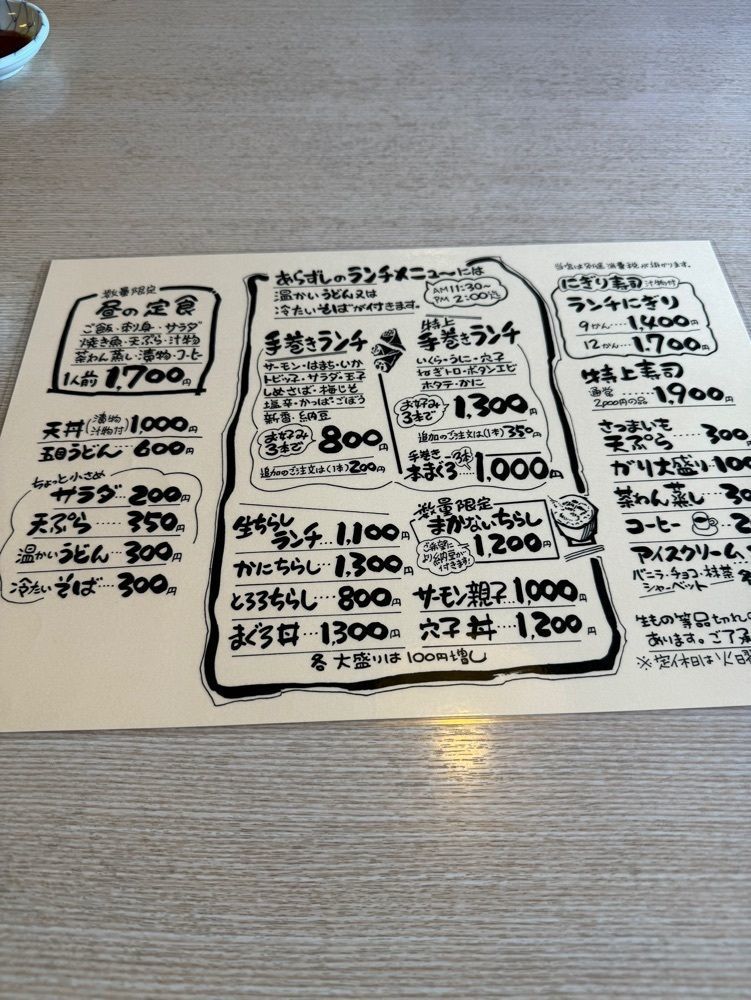 数量限定
昼の定食
ご飯・刺り身・サラダ
焼き魚・天ぷら・汁物
茶わん蒸い・漬物・コーヒー
1人前 1,700円
天丼(漬物汁物付)1,000円
五目うどん…600円
ちょっと小さめ
サラダ…200円
天ぷら……350円
温かいうどん…300円
冷たいそば…300円
あらずしのランチメニューには
温かいうどん又は
冷たいそばが付きます。
AM11:30~
PM2:00迄
手巻きランチ
サーモン・はまち・いか
トビッコ・サラダ・玉子
しめさば・梅じそ
塩辛・かっぱ・ごぼう
新香・納豆
お好み
3本で
800円
追加のご注文は(1本)200円
特上
手巻きランチ
いくら・うに・穴子
ねぎトロ・ボタンエビ
ホタテ・かに
お好み
3本で
1,300円
追加のご注文は(1本)350円
手巻き 3本
本まぐろ…1,000円
生ちらし
ランチ…1,100円
かにちらし…1,300円
とろろちらし…800円
まぐろ丼…1,300円
数量限定
まかないちらし
ご希望に
より納豆が
付きます!
1,200円
サーモン親子…1,000円
穴子丼…1,200円
各大盛りは100円増し
当店は別途消費税が掛かります。
にぎり寿司 汁物付
ランチにぎり
9かん……1,400円
12かん…1,700円
特上寿司
通常
2,000円の品
1,900円
さつまいも
天ぷら…300
がり大盛り100
茶わん蒸し
コーヒー
アイスクリーム
バニラ・チョコ・抹茶
シャーベット
生もの等品切れの
あります。ご了承
※定休日は火曜